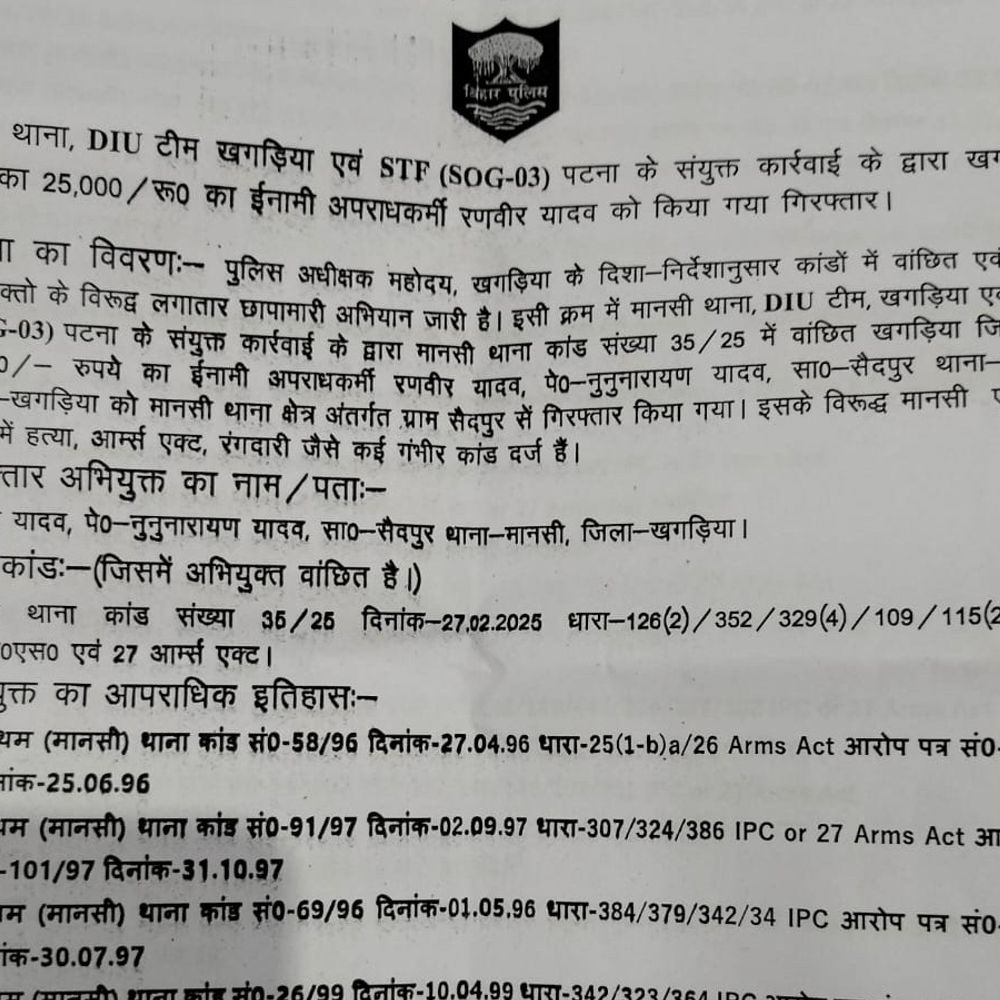 बिहार पुलिस
थाना, DIU टीम खगड़िया एवं STF (SOG-03) पटना के संयुक्त कार्रवाई के द्वारा खग
का 25,000/रू0 का ईनामी अपराधकर्मी रणवीर यादव को किया गया गिरफ्तार।
का विवरणः– पुलिस अधीक्षक महोदय, खगड़िया के दिशा–निर्देशानुसार कांडों में वांछित एवं
क्तो के विरूद्ध लगातार छापामारी अभियान जारी है। इसी क्रम में मानसी थाना, DIU टीम, खगड़िया एवं
G-03) पटना के संयुक्त कार्रवाई के द्वारा मानसी थाना कांड संख्या 35/25 में वांछित खगड़िया जि
0/– रुपये का ईनामी अपराधकर्मी रणवीर यादव, पे0–नुनुनारायण यादव, सा0–सैदपुर थाना–
–खगड़िया को मानसी थाना क्षेत्र अंतर्गत ग्राम सैदपुर सें गिरफ्तार किया गया। इसके विरूद्ध मानसी
में हत्या, आर्म्स एक्ट, रंगदारी जैसे कई गंभीर कांड दर्ज हैं।
तार अभियुक्त का नाम/पताः–
यादव, पे0–नुनुनारायण यादव, सा0–सैदपुर थाना–मानसी, जिला–खगड़िया।
कांडः–(जिसमें अभियुक्त वांछित है।)
थाना कांड संख्या 35/25 दिनांक–27.02.2025 धारा–126(2)/352/329(4)/109/115(2
0एस0 एवं 27 आर्म्स एक्ट।
युक्त का आपराधिक इतिहासः–
थम (मानसी) थाना कांड सं0-58/96 दिनांक-27.04.96 धारा-25(1-b)a/26 Arms Act आरोप पत्र सं0-
नांक-25.06.96
थम (मानसी) थाना कांड सं0-91/97 दिनांक-02.09.97 धारा-307/324/386 IPC or 27 Arms Act आ
-101/97 दिनांक-31.10.97
थम (मानसी) थाना कांड सं0-69/96 दिनांक-01.05.96 धारा-384/379/342/34 IPC आरोप पत्र सं0-
नांक-30.07.97
थम (मानसी) थाना कांड सं0-26/99 दिनांक-10.04.99 धारा-342/323/364 IPC आरोप पत्र सं0